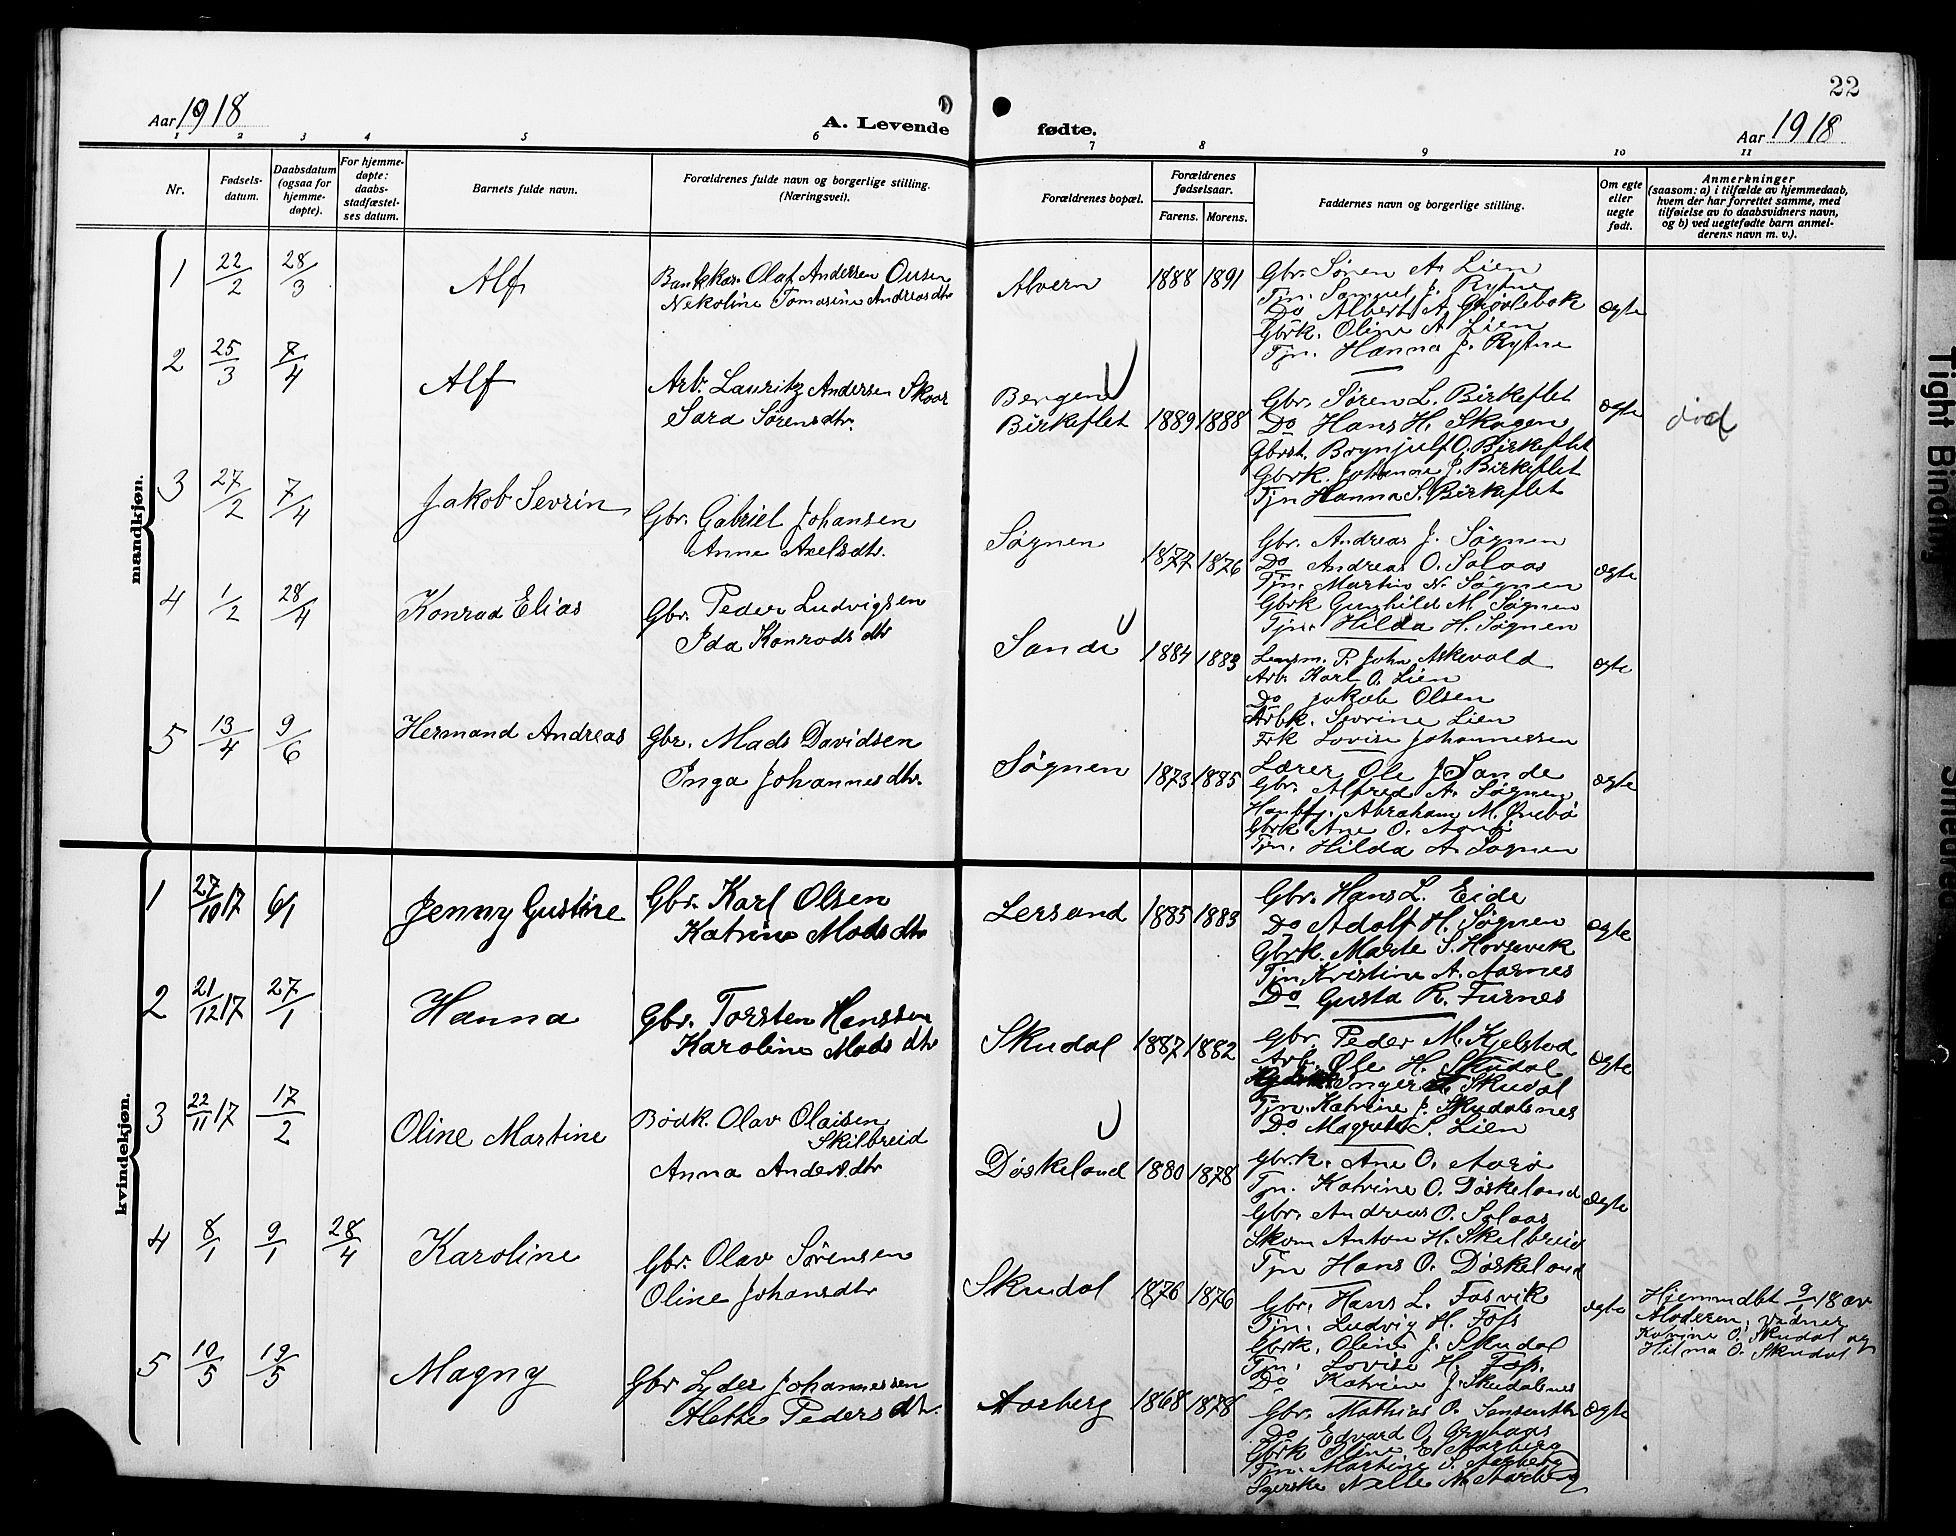 22
Aar 1918
A. Levende
fødte.
Aar 1918
1 2 3 4 5 6 7 8 9 10 11
Nr.
Fødsels-
datum.
Daabsdatum
(ogsaa for
hjemme-
døpte).
For hjemme-
døpte:
daabs-
stadfæstel-
ses datum.
Barnets fulde navn.
Forældrenes fulde navn og borgerlige stilling.
(Næringsvei).
Forældrenes bopæl.
Forældrenes
fødselsaar.
Farens. Morens.
Faddernes navn og borgerlige stilling.
Om egte
eller
uegte
født.
Anmerkninger
(saasom: a) i tilfælde av hjemmedaab,
hvem der har forrettet samme, med
tilføielse av to daabsvidners navn,
og b) ved uegtefødte barn anmel-
derens navn m. v.).
mandkjøn.
1 22/2 28/3 Alf
Bankkas. Olaf Andersen
Nekoline Tomasine Andreasdtr
Alvern 1888 1891
Gbr. Søren A. Lien
Tjn. Samuel J. Rytne
Do Albert A. Grøvlebak
Gbrk. Oline A. Lien
Tjn. Hanna J. Rytne
ægte
2 25/3 7/4 Alf
Arb. Lauritz Andersen Skaar
Sara Sørensdtr.
Bergen
Birkeflet 1889 1888
Gbr. Søren L. Birkeflet
Do Hans H. Skogen
Gbrst. Brynjulf O. Birkeflet
Gbrk. Johanne J. Birkeflet
Tjn Hanna S. Birkeflet
ægte
død
3 27/2 7/4 Jakob Sevrin
Gbr. Gabriel Johansen
Anne Axelsdtr.
Søgnen 1877 1876
Gbr. Andreas J. Søgnen
Do Andreas O. Solaas
Tjn. Martin N. Søgnen
Gbrk Gunhild M. Søgnen
Tjn. Hilda H. Søgnen
ægte
4 1/2 28/4 Konrad Elias
Gbr. Peder Ludvigsen
Ida Konradsdtr
Sande 1884 1883
Lensm. P. John Askevold
Arb. Karl O. Lien
Do Jakob Olsen
Arbk. Sevrine Lien
Frk Lovise Johannessen
ægte
5 13/4 9/6 Hermand Andreas
Gbr. Mads Davidsen
Inga Johannesdtr.
Søgnen 1873 1885
Lærer Ole J. Sande
Gbr. Alfred A. Søgnen
Abraham M.
Gbrk Ane O. Aarø
Tjn. Hilda A. Søgnen
ægte
kvindekjøn.
1 27/10 17 6/1 Jenny Gustine
Gbr. Karl Olsen
Katrine Madsdtr
Lersand 1885 1883
Gbr. Hans L. Eide
Do Adolf H. Søgnen
Gbrk. Marte S. Hovsevik
Tjn Kristine A. Aarnes
Do Gusta R. Furnes
ægte
2 21/12 17 27/1 Hanna
Gbr. Torsten Hanssen
Karoline Madsdtr
Skudal 1887 1882
Gbr. Peder M. Kjelstad
Arb. Ole H. Skudal
Inger Skudal
Tjn. Katrine J. Skudalsnes
Do. Magrete S. Lien
ægte
3 22/11 17 17/2 Oline Martine
Bødk. Olav Olaisen
Skilbreid
Anna Andersdtr
Døskeland 1880 1878
Gbr.k. Ane O. Aarø
Tjn. Katrine O. Døskeland
Gbr. Andreas O. Solaas
Skom Anton H. Skilbreid
Tjn Hans O. Døskeland
ægte
4 8/1 9/1 28/4 Karoline
Gbr. Olav Sørensen
Oline Johansdtr
Skudal 1876 1876
Gbr. Hans L. Fosvik
Tjn. Ludvig H. Foss
Gbrk. Oline J. Skudal
Tjn. Lovise H. Foss.
Do Katrine J. Skudalsnes
ægte
Hjemmdbt 9/1 18 av
Moderen, vidner
Katrine O. Skudal og
Hilma O. Skudal
5 10/5 19/5 Magny
Gbr Lyder Johannessen
Alette Pedersdtr.
Aarberg 1868 1878
Gbr. Mathias O.
Do Edvard O. Grythaas
Gbrk Oline E. Aarberg
Tjn. Martine S. Aarberg
Syerske Nelle N. Aarberg
ægte
Tight Binding
Smeared